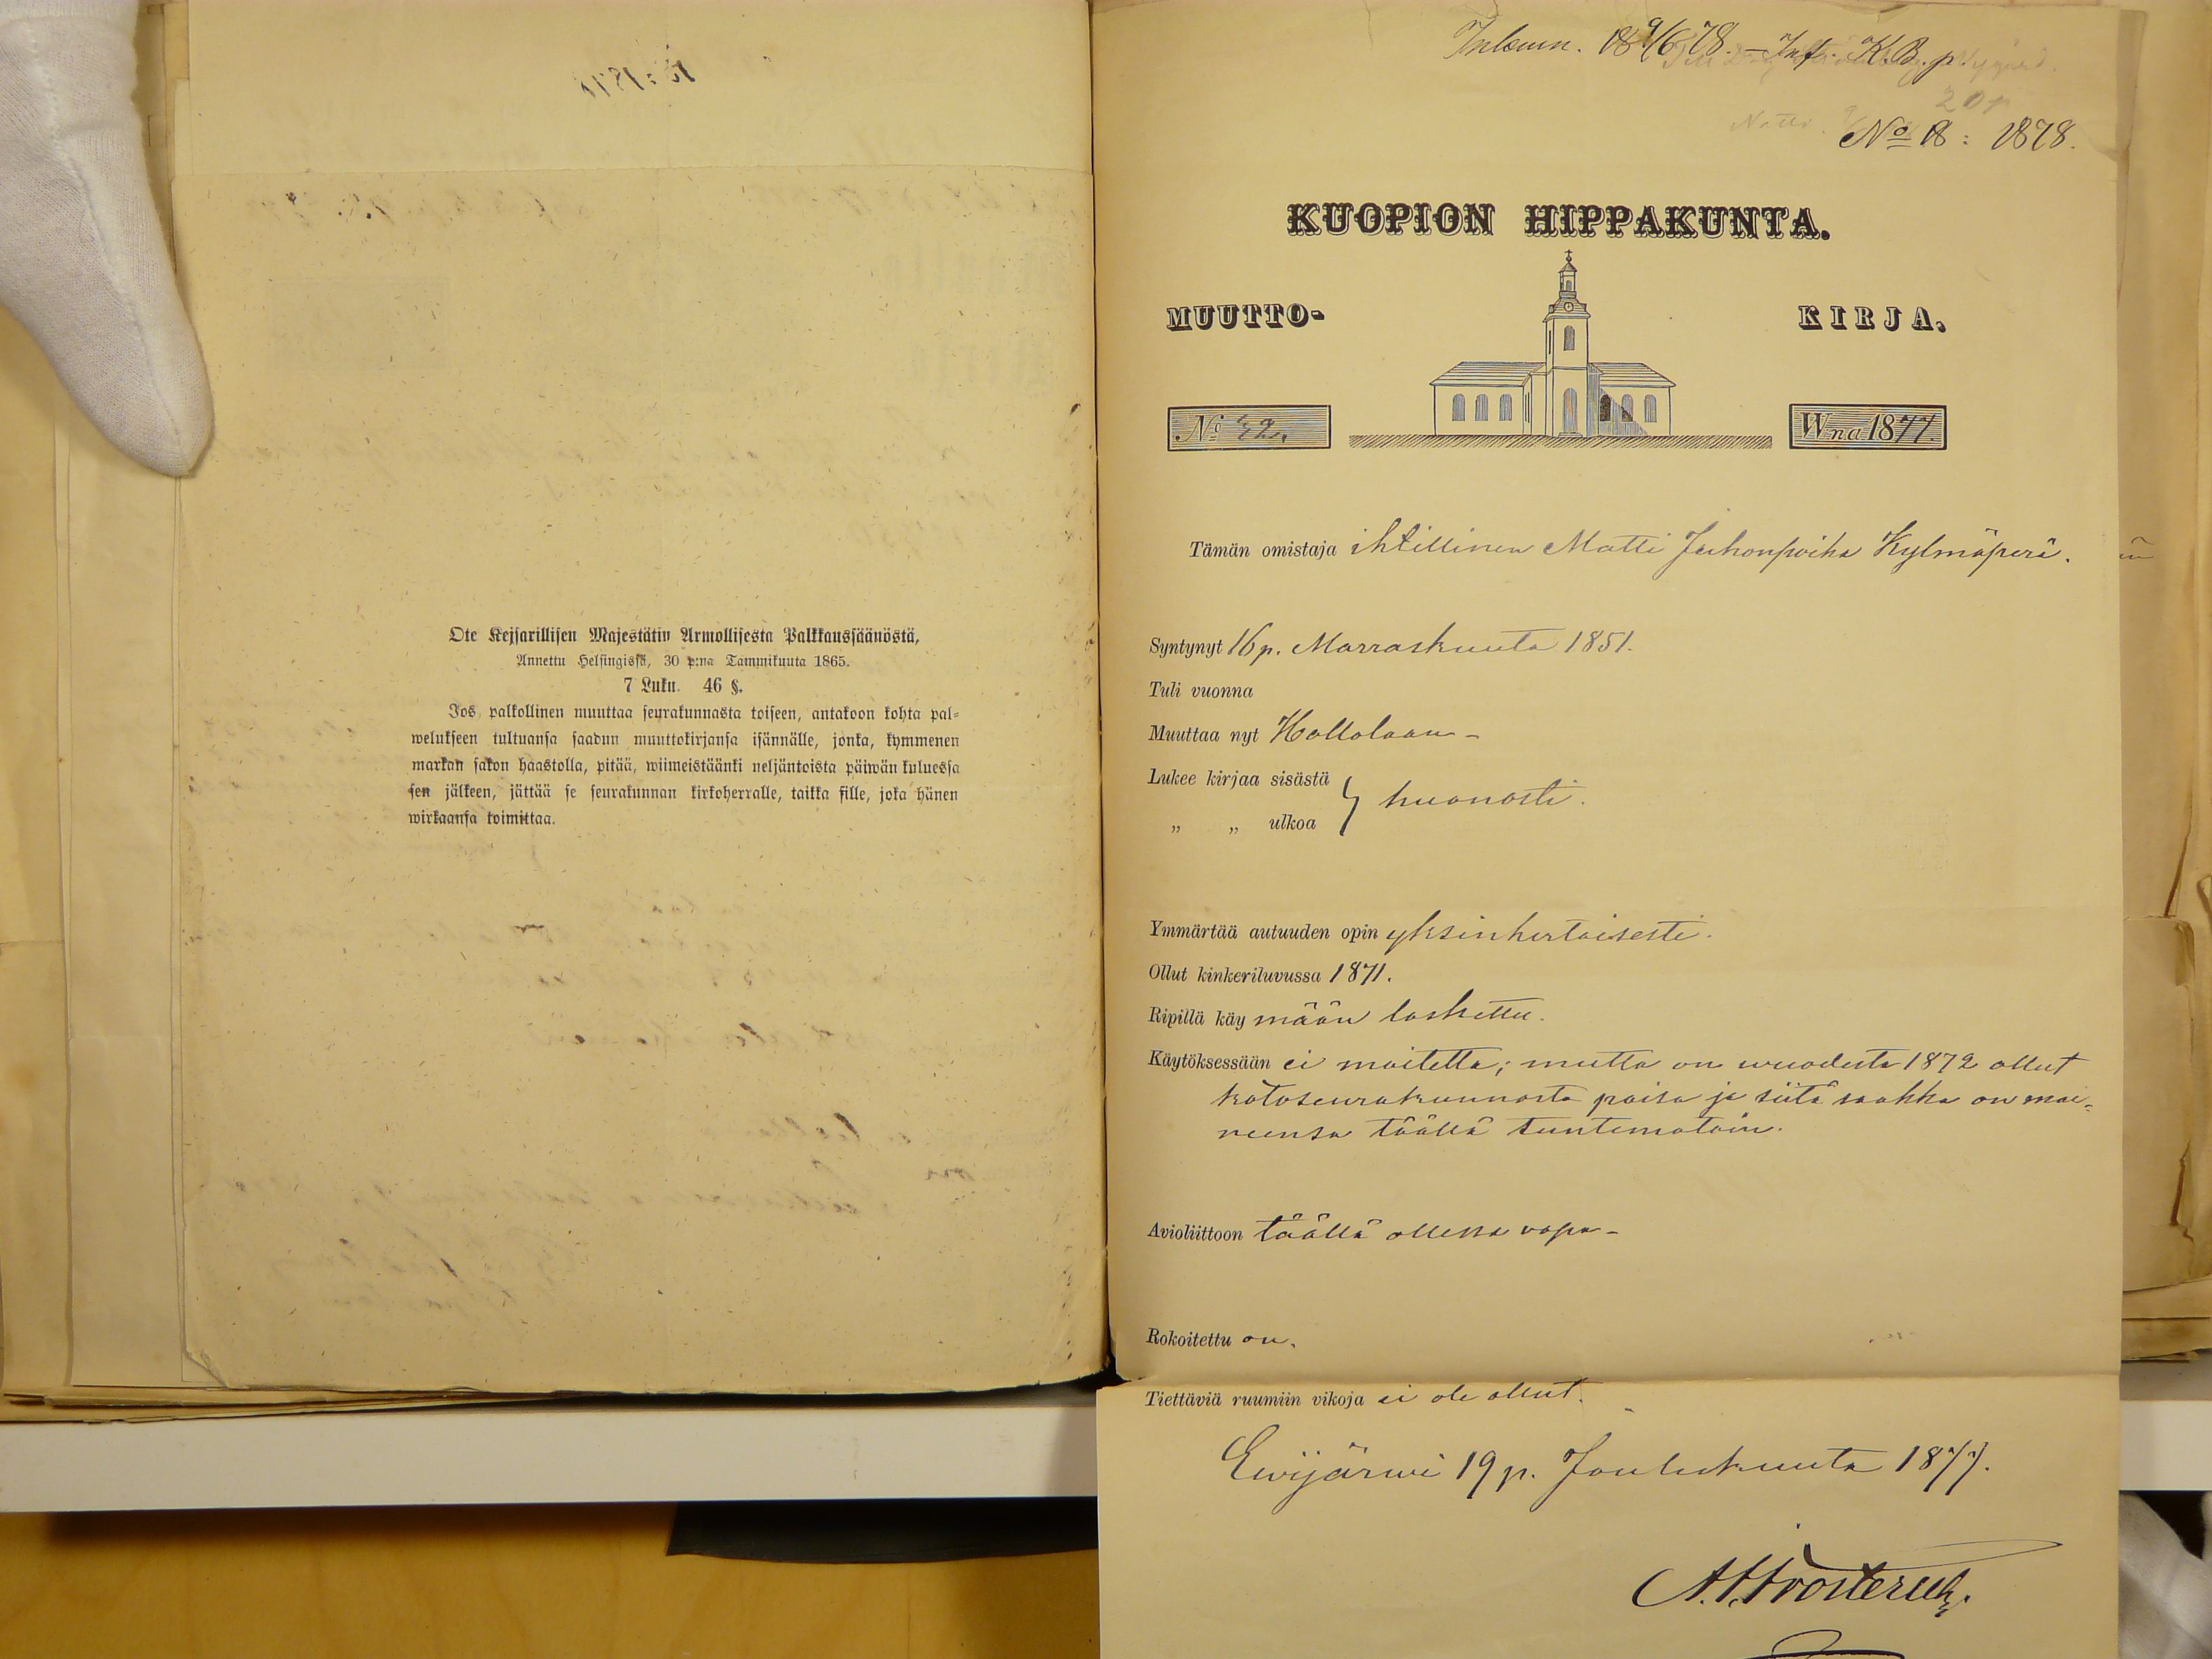 Ote Kejsarillisen Majestätin Armollisesta Palkkaussäänöstä,
Annettu Helsingissä, 30 p:na Tammikuuta 1865.
7 Luku. 46 §.
Jos palkollinen muuttaa seurakunnasta toiseen, antakoon kohta pal-
welukseen tultuansa saadun muuttokirjansa isännälle, jonka, kymmenen
markan sakon haastolla, pitää, wiimeistäänki neljäntoista päiwän kuluessa
sen jälkeen, jättää se seurakunnan kirkoherralle, taikka sille, joka hänen
wirkaansa toimittaa.
Inlemn. 18 9/6 78. – Inf. K.B. p.
No 18: 1878.
KUOPION HIPPAKUNTA.
MUUTTO- KIRJA.
No 42. Wna 1877.
Tämän omistaja ihtillinen Matti Juhonpoika Kylmäperä.
Syntynyt 16 p. Marraskuuta 1851.
Tuli vuonna
Muuttaa nyt Hollolaan –
Lukee kirjaa sisästä
„ „ ulkoa } huonosti.
Ymmärtää autuuden opin yksinkertaisesti.
Ollut kinkeriluvussa 1871.
Ripillä käymään laskettu.
Käytöksessään ei moitetta; mutta on wuodesta 1872 ollut
kotoseurakunnasta poisa ja siitä saakka on mai-
neensa täällä tuntematoin.
Avioliittoon täällä ollessa vapa –
Rokoitettu on.
Tiettäviä ruumiin vikoja ei ole ollut.
Ewijärwi 19 p. Joulukuuta 1877.